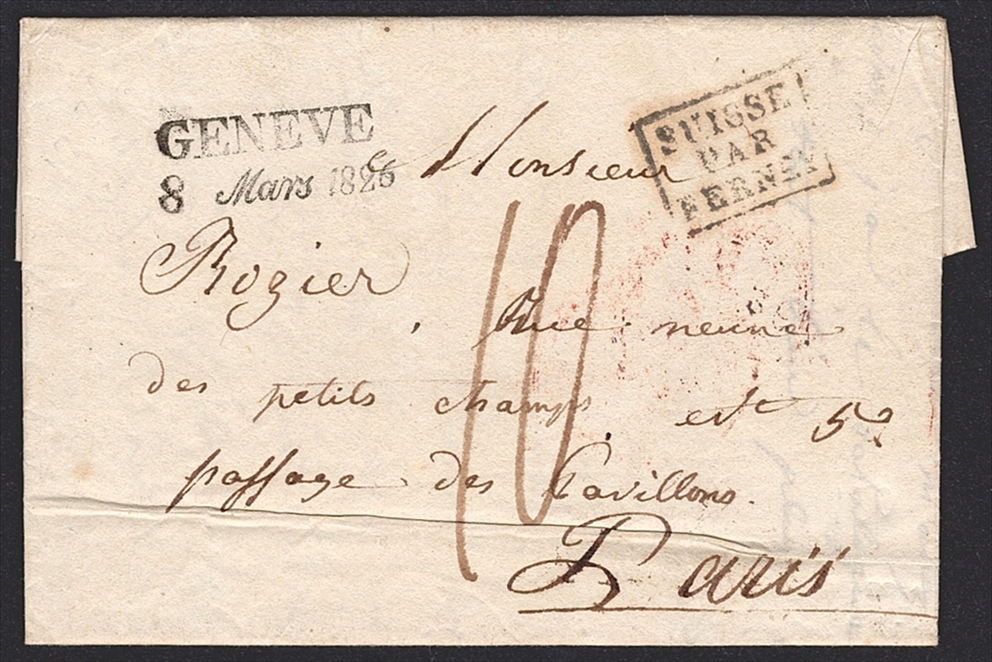 GENEVE
8 Mars 1826
SUISSE
PAR
FERNEY
Monsieur
Rogier
Rue neuve
des petits champs est 5
passage des Pavillons.
Paris
10